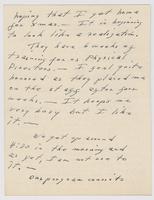 hoping that I get home
for Xmas. — It is beginning
to look like a realization.
They have 6 weeks of
training for us Physical
Directors. — I feel quite
honored as they placed me
on the staff after four
weeks. — It keeps me
very busy but I like
it. —
We get up around
4:30 in the morning and
as yet, I am not use to
it. —
Our program consists